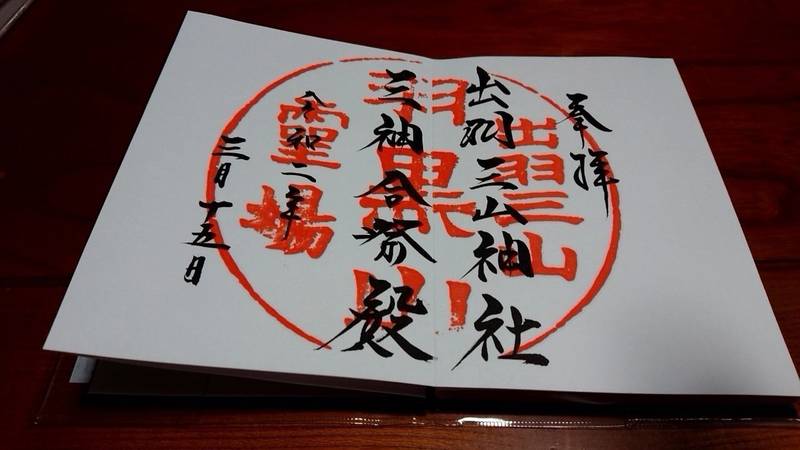 奉拝
出羽三山神社
三神合祭殿
令和二年
三月十五日
出羽三山
羽黒山
靈場